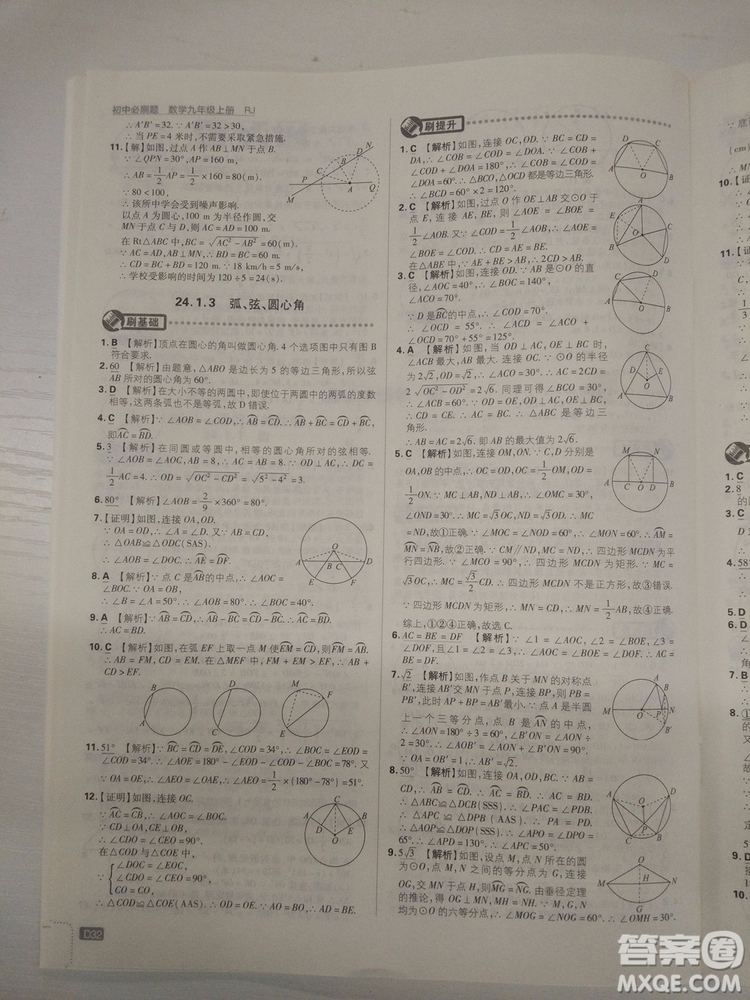 初中必刷题 数学九年级上册 RJ
∴ A′B′=32. ∵ A′B′=32>30,
∴ 当 PE=4 米时,不需要采取紧急措施.
11.【解】如图,过点 A 作 AB⊥MN 于点 B.
∵ ∠QPN=30°,∠ABP=90°,
∴ AB=1/2AP=1/2×160=80(m).
∵ 80<100,
∴ 该所中学会受到噪声影响.
以点 A 为圆心,100 m 为半径作圆,交
MN 于点 C 与 D,则 AC=AD=100 m.
在 Rt△ABC 中,BC=√(AC²-AB²)=60(m).
∵ AC=AD,AB⊥MN,∴ BC=BD=60 m,
∴ CD=BC+BD=120 m. ∵ 18 km/h=5 m/s,
∴ 学校受影响的时间为 120÷5=24(s).
24.1.3 弧、弦、圆心角
刷基础
1. B 【解析】顶点在圆心的角叫做圆心角. 4 个选项图中只有图 B
符合要求.
2. 60 【解析】由题意,△ABO 是边长为 5 的等边三角形,所以弦
AB 所对的圆心角为 60°.
3. D 【解析】在大小不等的两个圆中,即使位于两圆中的两弧的度数
相等,这两条弧也不相等,故 D 错误.
4. C 【解析】∵ ∠AOB=∠COD,∴ AB=CD,∴ AB+BC=CD+BC,
即 AC=BD.
5. 3 【解析】∵ 在同圆或等圆中,相等的圆心角所对的弦相等.
∵ ∠AOB=∠AOC,AB=8,∴ AC=AB=8. ∵ OD⊥AC,∴ DC=
1/2AC=4. ∴ OD=√(OC²-CD²)=√(5²-4²)=3.
6. 80° 【解析】∠AOB=2/9×360°=80°.
7.【证明】如图,连接 OA,OD.
∵ OA=OD,∴ ∠A=∠D.
∴ △OAB≌△ODC(SAS).
∴ ∠AOB=∠DOC. ∴ AE=DF.
8. A 【解析】∵ 点 C 是 AB的中点,∴ ∠AOC=
∠BOC. ∵ OA=OB,
∴ ∠B=∠A=50°. ∴ ∠BOC=90°-∠B=40°.
9. A 【解析】∵ AB=CD,∴ AB-BC=CD-BC. ∴ AC=BD.
∴ AC=BD.
10. C 【解析】如图,在弧 EF 上取一点 M 使 EM=CD,则 FM=
AB. ∴ AB=FM,CD=EM. 在△MEF 中,FM+EM>EF,∴ AB+
CD>EF.
11. 51° 【解析】∵ BC=CD=DE,∠COD=34°,∴ ∠BOC=∠EOD=
∠COD=34°. ∴ ∠AOE=180°-∠EOD-∠COD-∠BOC=78°. 又
∵ OA=OE,∴ ∠AEO=∠OAE. ∴ ∠AEO=1/2×(180°-78°)=51°.
12.【证明】如图,连接 OC.
∵ AC=BC,∴ ∠AOC=∠BOC.
∵ CD⊥OA,CE⊥OB,
∴ ∠CDO=∠CEO=90°.
在△COD 与△COE 中,
∵ ∠DOC=∠EOC,
∠CDO=∠CEO,
CO=CO,
∴ △COD≌△COE(AAS). ∴ OD=OE. ∵ AO=BO,∴ AD=BE.
D32
刷提升
1. C 【解析】如图,连接 OC,OD. ∵ BC=CD=
DA,∴ ∠COB=∠COD=∠DOA. ∵ ∠COB+
∠COD+∠DOA=180°,∴ ∠COB=∠COD=
∠DOA=60°. ∴ △BCO,△OCD都是等边三角形.
∴ ∠BCD=60°×2=120°.
2. C 【解析】如图,过点 O 作 OE⊥AB 交⊙O 于
点 E,连接 AE,BE,则 ∠AOE=∠BOE=
1/2∠AOB. 又∵ ∠COD=1/2∠AOB,∴ ∠AOE=
∠BOE=∠COD. ∴ CD=AE=BE.
∵ 在△ABE 中,AE+BE>AB,∴ 2CD>AB.
3. C 【解析】如图,连接 OC. ∵ AB 是⊙O的直
径,∠AOC=40°,∴ ∠BOC=140°,
∠ACO=70°.
∵ D是BC的中点,∴ ∠COD=70°.
∴ ∠OCD=55°. ∴ ∠ACD=∠ACO+
∠OCD=70°+55°=125°.
4. A 【解析】如图,当 OD⊥AC 时,
∠ACB 最大,AB 最大. ∵ ⊙O 的半径
为 2√2,OD=√2,∴ AC=2CD=
2√(OC²-OD²)=2√6. 同理可得 ∠BCO=30°,
∴ ∠ACB=60°. ∵ OD=OE,OD⊥AC,
OE⊥CB,∴ AC=BC. ∴ △ABC 是等边三
角形.
∴ AB=AC=2√6,即 AB 的最大值为 2√6.
5. C 【解析】如图,连接 OM,ON. ∵ C,D 分别是
OA,OB 的中点,∴ OC=1/2OM,OD=
1/2ON. ∵ MC⊥AB,ND⊥AB,∴ ∠OMC=
∠OND=30°. ∴ MC=√3OC,ND=√3OD. ∴ MC
=ND,故①正确. ∵ ∠MOC=∠NOD=60°,∴ ∠MON=60°. ∴ AM=
MN=NB,故②正确. ∵ CM∥ND,MC=ND,∴ 四边形 MCDN 为平
行四边形. ∵ ∠MCO=90°,∴ 四边形 MCDN 是矩形. ∵ MC=
∴ 四边形 MCDN 不是正方形,故③错误.
∵ 四边形 MCDN 为矩形,∴ MN=CD=1/2AB,故④正确.
综上,①②④正确,故选 C.
6. AC=BE=DF 【解析】∵ ∠1=∠AOC,∠2=∠BOE,∠3=
∠DOF,且∠1=∠2=∠3,∴ ∠AOC=∠BOE=∠DOF. ∴ AC=
BE=DF.
7. √2 【解析】如图,作点 B 关于 MN 的对称点
B′,连接 AB′交 MN 于点 P,连接 BP,则 PB=
PB′,此时 AP+BP=AB′最小. ∵ 点 A 是半圆
上一个三等分点,点 B 是AN的中点,
∴ ∠AON=180°÷3=60°,∠B′ON=
∠AON÷2=30°,∴ ∠AOB′=∠AON+∠B′ON=90°.
∵ OA=OB′=1,∴ AB′=√2.
8. 50° 【解析】如图,连接 BC,OB,OC,OD. ∵ AB=
CD,∴ AB=CD. ∴ AC=BD. ∴ AC=BD.
∴ △ABC≌△DCB(SSS). ∴ ∠PAC=∠PDB.
∴ △APC≌△DPB(AAS). ∴ PA=PD.
∴ △AOP≌△DOP(SSS). ∴ ∠APO=∠DPO=
65°. ∴ ∠APD=130°. ∴ ∠APC=50°.
9. 5√3 【解析】如图,设点 M,点 N 所在的圆
为⊙O,点 M,N 之间的等分点为 G,连接
MO,OG,MN,则 MG=GN. 由垂径定理
的推论,得 MN⊥OG,MH=HN. ∵ M,G,N
均为⊙O 的六等分点,∴ ∠MOG=∠NOG=60°,∴ ∠OMH=30°.
答案圈
MXQE.COM